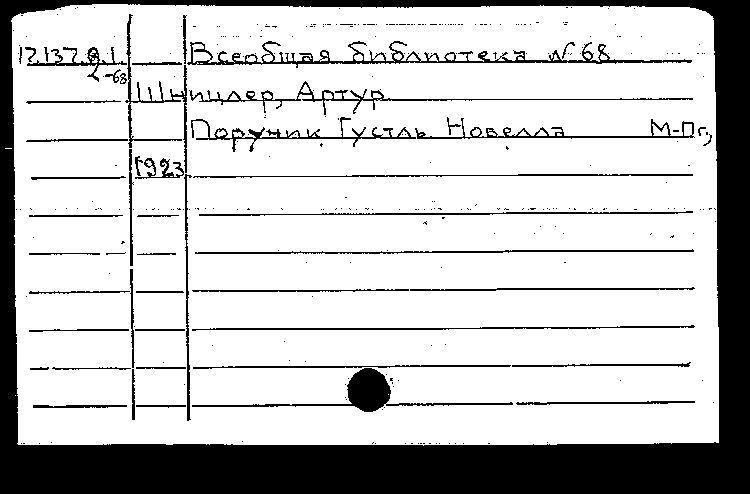 17.137.8.1. Всеобщая библиотека №68
2-68
Шницлер, Артур
Поручик Густль. Новелла М-Пг,
1923